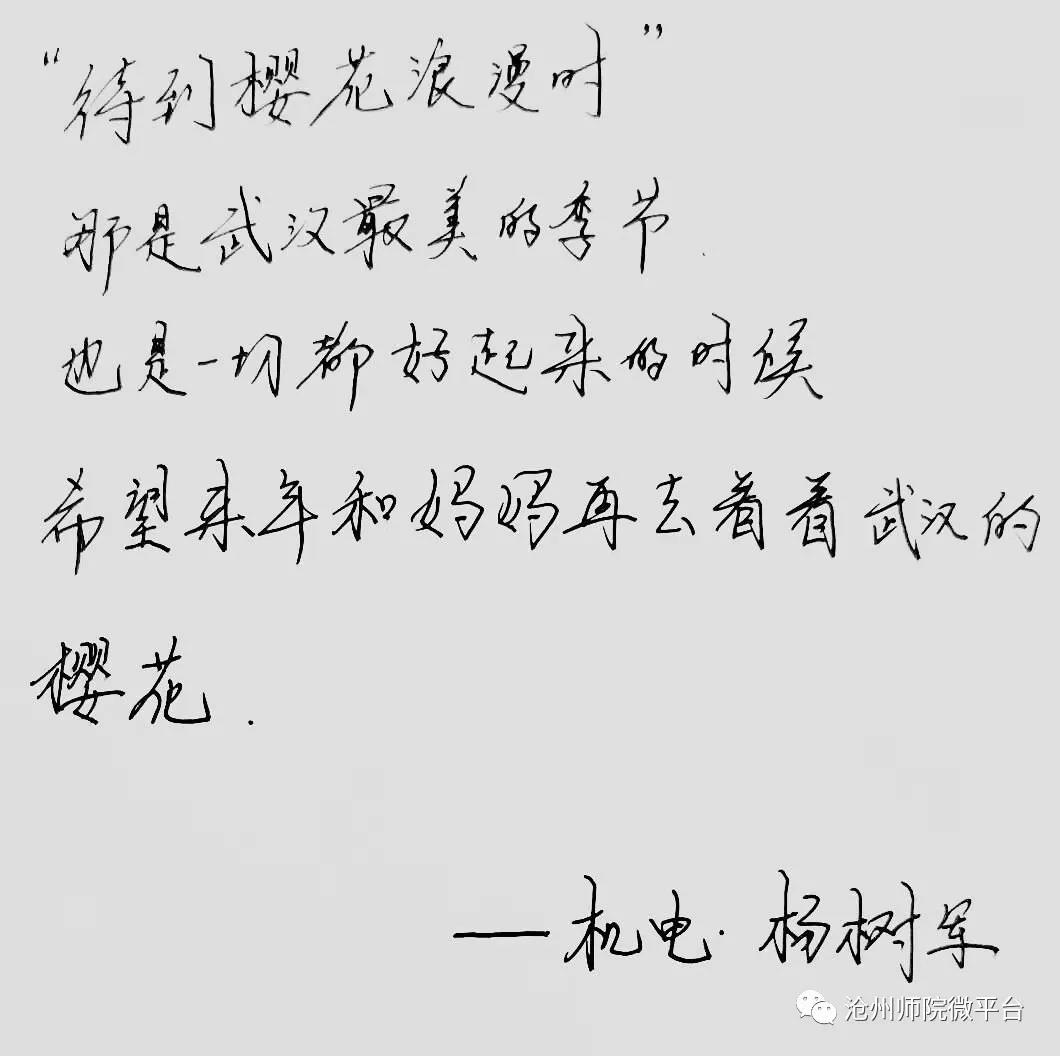 “待到樱花浪漫时”
那是武汉最美的季节.
也是一切都好起来的时候
希望来年和妈妈再去看看武汉的
樱花.
——机电·杨树军
沧州师院微平台